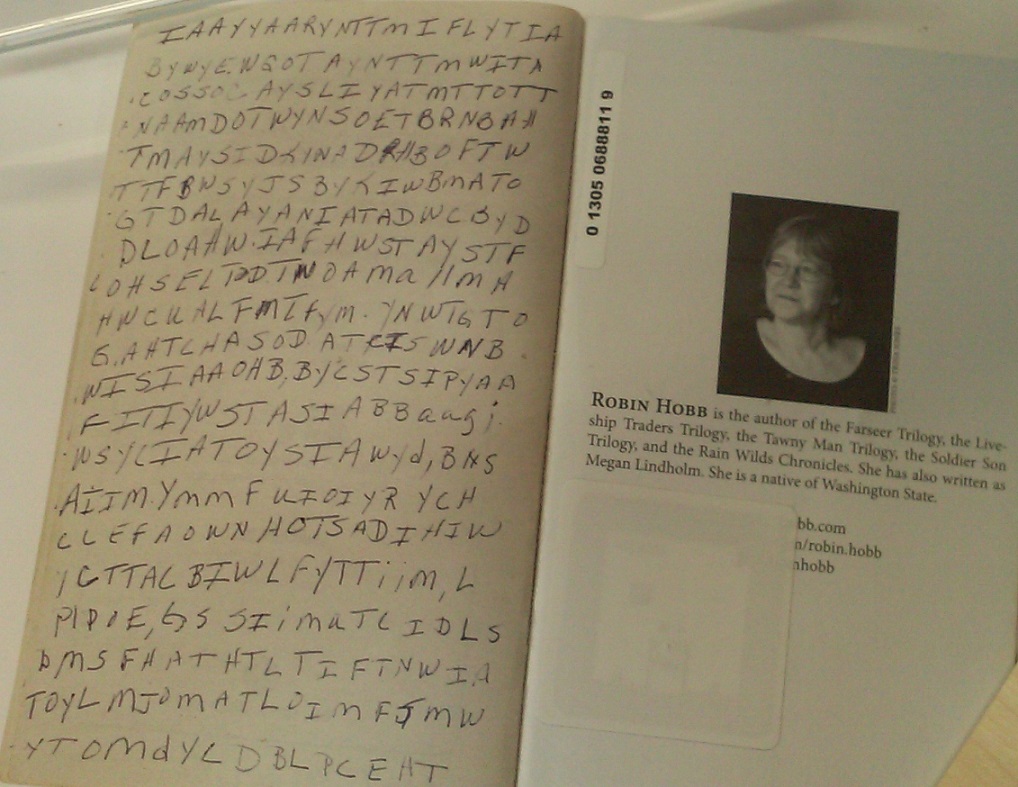 IAAYYAARYNTTMIFLYTIA
BYWYE.WGOTAYNTTMWITA
COSSOC AYSLIYATMTTOTT
NAAMDOTWYNSOETBRNBAH
TMAYSIDKYNADRHBOFTW
TTFBWSYJSBYKIWBMATO
GTDALAYANIATADWCBYD
DLOAHW.IAFHWSTAYSTF
HWCKALFMIFYM.YNWTGTO
WISIAAOHB,BYCSTSIPYAA
FITIYWSTASIABBaugi.
WSYCIATOYSIAWYd,BNS
AIIM.YmmFUIOIYRYCH
CLEFAOWNHOTSADIHIW
YGTTACBIWLFYTTiim,L
DMSFHATHTLTIFTNWIA
TOYLMJOMATLOIMFJMW
YTOMdYLDBLPCEHT
0 1305 0688811 9
ROBIN HOBB is the author of the Farseer Trilogy, the Live-
ship Traders Trilogy, the Tawny Man Trilogy, the Soldier Son
Trilogy, and the Rain Wilds Chronicles. She has also written as
Megan Lindholm. She is a native of Washington State.
bb.com
n/robin.hobb
hobb